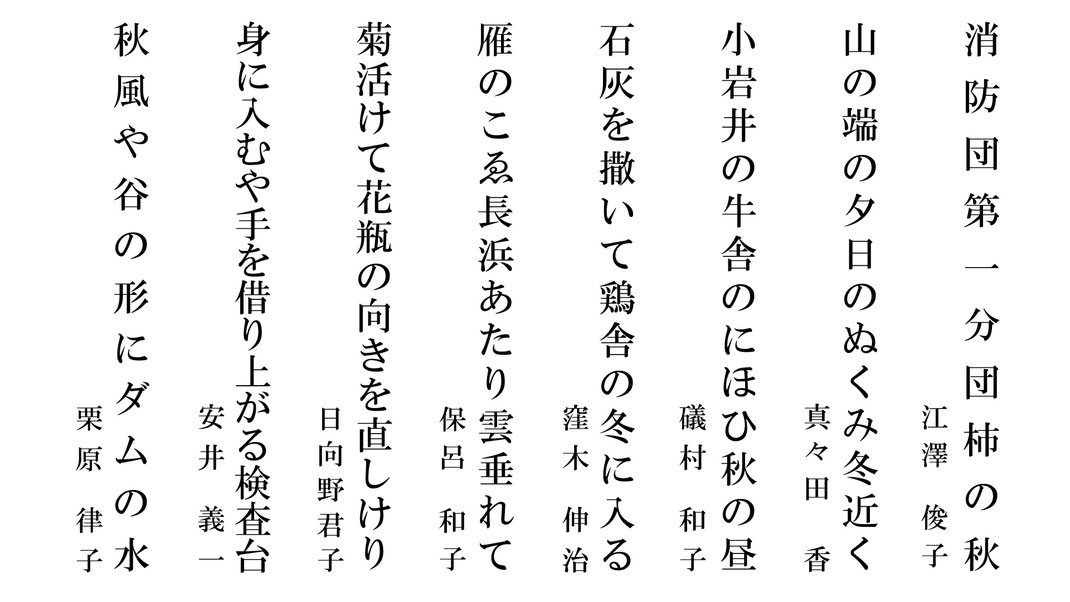 消防団第一分団柿の秋
江澤 俊子
山の端の夕日のぬくみ冬近く
真々田 香
小岩井の牛舎のにほひ秋の昼
礒村 和子
石灰を撒いて鶏舎の冬に入る
窪木 伸治
雁のこゑ長浜あたり雲垂れて
保呂 和子
菊活けて花瓶の向きを直しけり
日向野君子
身に入むや手を借り上がる検査台
安井 義一
秋風や谷の形にダムの水
栗原 律子